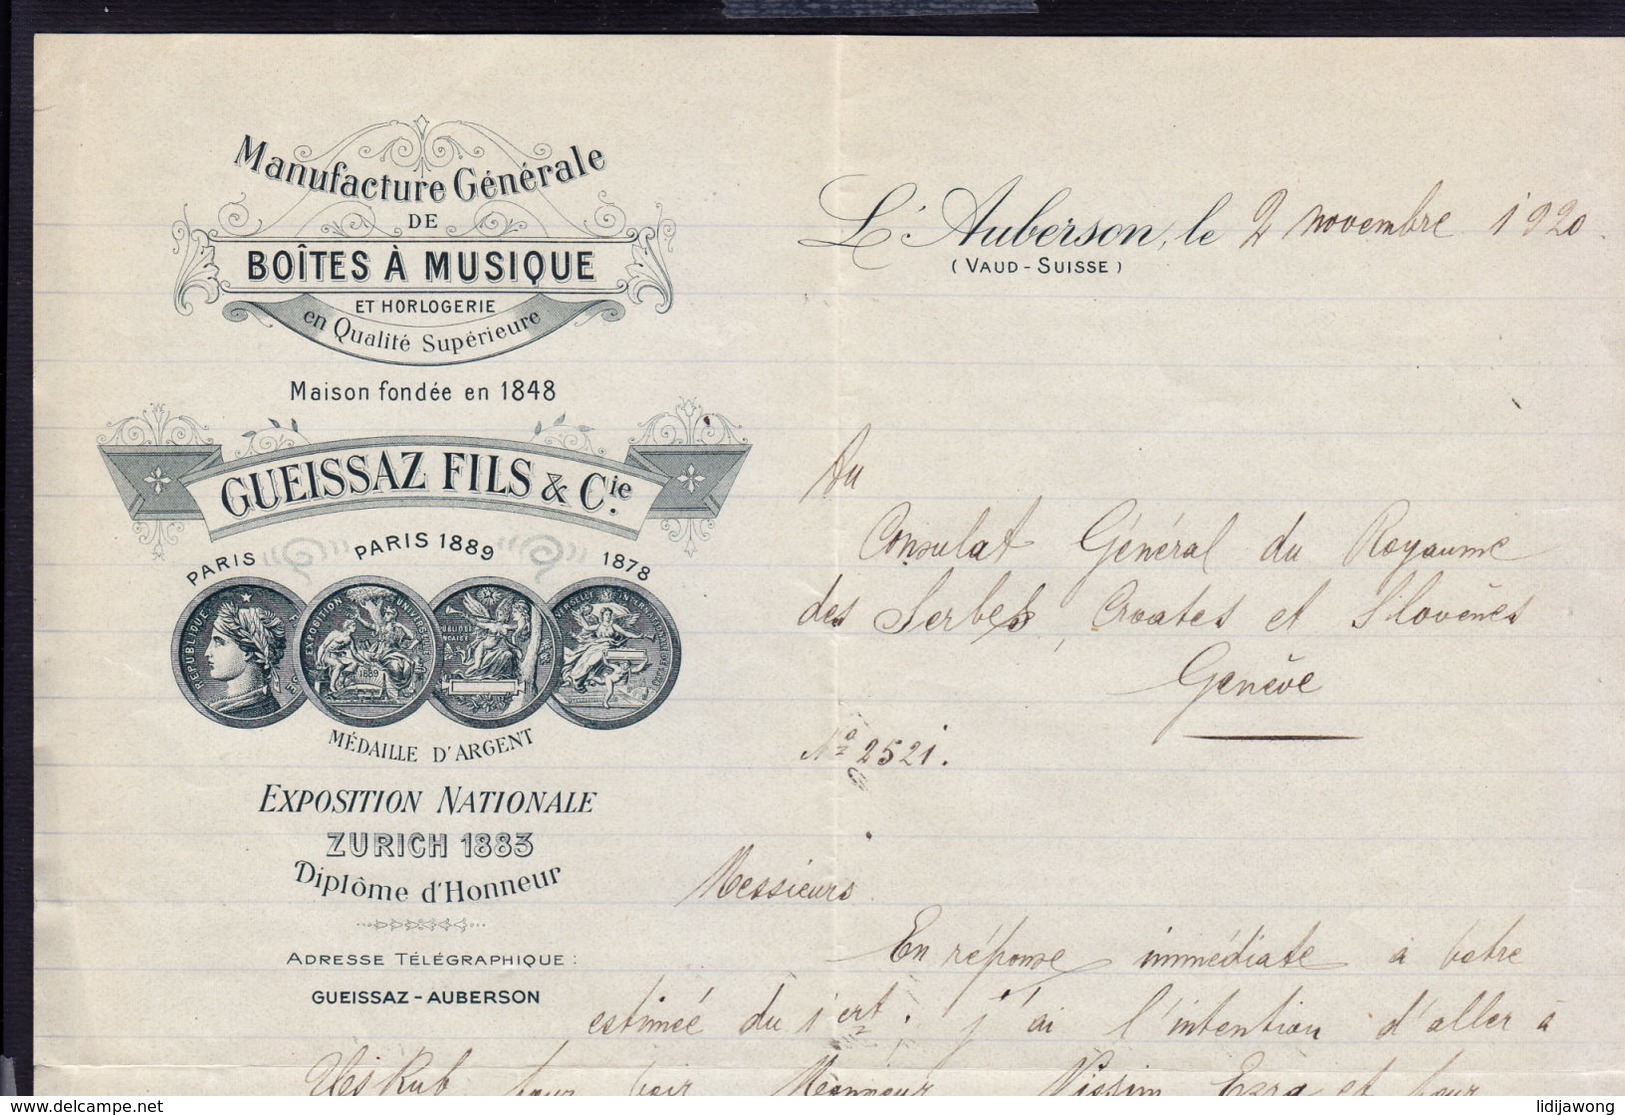 Manufacture Générale
DE
BOÎTES À MUSIQUE
ET HORLOGERIE
en Qualité Supérieure
Maison fondée en 1848
GUEISSAZ FILS & Cie.
PARIS PARIS 1889 1878
RÉPUBLIQUE
EXPOSITION UNIVERSELLE
1889
MÉDAILLE D'ARGENT
EXPOSITION NATIONALE
ZURICH 1883
Diplôme d'Honneur
ADRESSE TÉLÉGRAPHIQUE :
GUEISSAZ-AUBERSON
L'Auberson, le 2 novembre 1920.
(VAUD-SUISSE)
Au
Consulat Général du Royaume
des Serbes, Croates et Slovènes
Genève
No 2521.
Messieurs
En réponse immédiate à votre
estimée du 1 crt. j'ai l'intention d'aller à
Uskub pour voir Monsieur Nissim Ezra et pour
lidijawong
www.delcampe.net